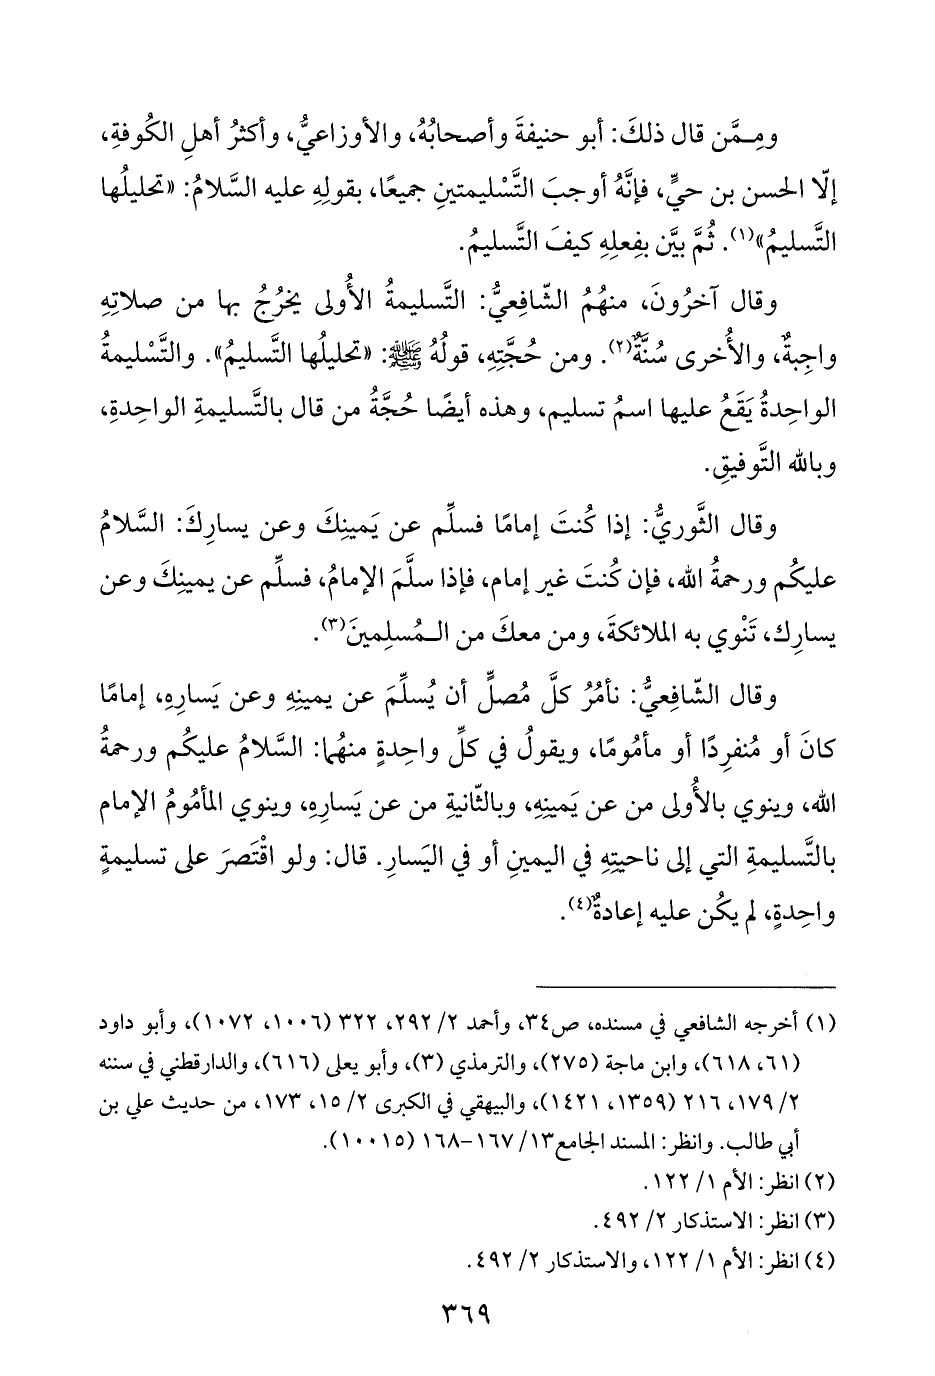 ومِـمَّن قال ذلكَ: أبو حنيفةَ وأصحابُهُ، والأوزاعيُّ، وأكثرُ أهلِ الكُوفةِ،
إلّا الحسن بن حيٍّ، فإنَّهُ أوجبَ التَّسْليمتينِ جميعًا، بقولِهِ عليه السَّلامُ: «تحليلُها
التَّسليمُ»(١). ثُمَّ بيَّن بفِعلِهِ كيفَ التَّسليمُ.
وقال آخرُونَ، منهُمُ الشّافعيُّ: التَّسليمةُ الأُولى يخرُجُ بها من صلاتِهِ
واجِبةٌ، والأُخرى سُنَّةٌ(٢). ومن حُجَّتِهِ، قولُهُ ﷺ: «تحليلُها التَّسليمُ». والتَّسْليمةُ
الواحِدةُ يَقَعُ عليها اسمُ تسليم، وهذه أيضًا حُجَّةُ من قال بالتَّسليمةِ الواحِدةِ،
وبالله التَّوفيقِ.
وقال الثَّوريُّ: إذا كُنتَ إمامًا فسلِّم عن يَمينِكَ وعن يسارِكَ: السَّلامُ
عليكُم ورحمةُ الله، فإن كُنتَ غير إمام، فإذا سلَّمَ الإمامُ، فسلِّم عن يمينِكَ وعن
يسارِك، تَنْوي به الملائكةَ، ومن معكَ من الـمُسلِمينَ(٣).
وقال الشّافِعيُّ: نأمُرُ كلَّ مُصلٍّ أن يُسلِّمَ عن يمينِهِ وعن يَسارِهِ، إمامًا
كانَ أو مُنفرِدًا أو مأمُومًا، ويقولُ في كلِّ واحِدةٍ منهُما: السَّلامُ عليكُم ورحمةُ
الله، وينوي بالأُولى من عن يَمينِهِ، وبالثّانيةِ من عن يَسارِهِ، وينوي المأمُومُ الإمام
بالتَّسليمةِ التي إلى ناحيتِهِ في اليمينِ أو في اليَسارِ. قال: ولو اقْتَصرَ على تسليمةٍ
واحِدةٍ، لم يكُن عليه إعادةٌ(٤).
(١) أخرجه الشافعي في مسنده، ص٣٤، وأحمد ٢/ ٢٩٢، ٣٢٢ (١٠٠٦، ١٠٧٢)، وأبو داود
(٦١، ٦١٨)، وابن ماجة (٢٧٥)، والترمذي (٣)، وأبو يعلى (٦١٦)، والدارقطني في سننه
٢/ ١٧٩، ٢١٦ (١٣٥٩، ١٤٢١)، والبيهقي في الكبرى ٢/ ١٥، ١٧٣، من حديث علي بن
أبي طالب. وانظر: المسند الجامع١٣/ ١٦٧-١٦٨ (١٠٠١٥).
(٢) انظر: الأم ١/ ١٢٢.
(٣) انظر: الاستذكار ٢/ ٤٩٢.
(٤) انظر: الأم ١/ ١٢٢، والاستذكار ٢/ ٤٩٢.
٣٦٩